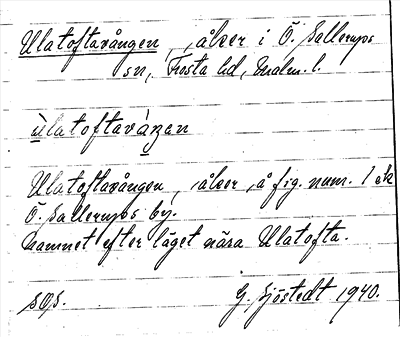 Ulatoftavången, åker i Ö. Sallerups
sn, Frosta hd, Malm. l.
ùlatoftavàŋen
Ulatoftavången, åker å fig. num. 1 och
Ö. Sallerups by.
Namnet efter läget nära Ulatofta.
G. Sjöstedt 1940.